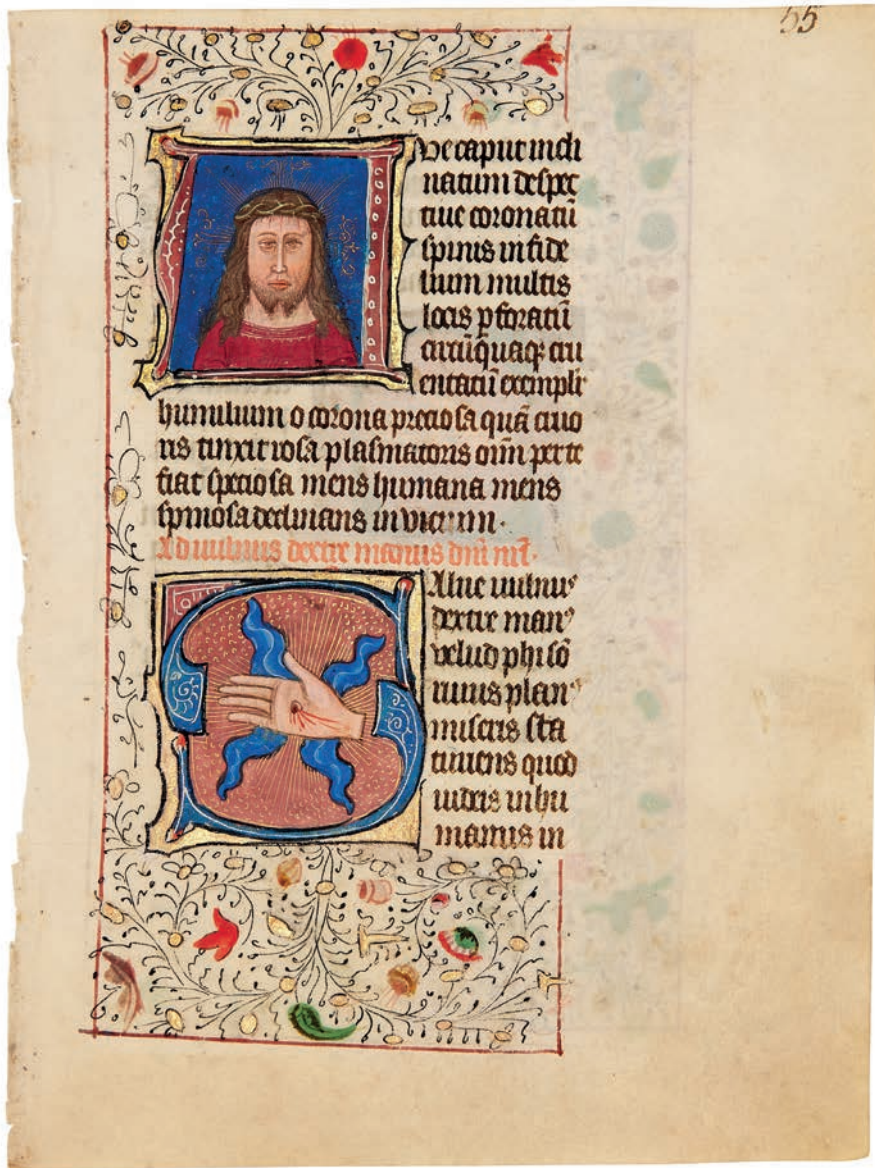 55
AUe caput incli
natum despec
tiue coronatū
spinis infide
lium multis
locis ꝑforatū
circūquaqꝫ cru
entatū exempli
humilium o corona preciosa quā cruo
ris tinxit rosa plasmatoris oīm per te
fiat speciosa mens humana mens
spinosa declinans in vicium·
Ad uulnus dextre manus dnī nrī·
SAlue uulnꝰ
dextre manꝰ
velud phisō
riuus planꝰ
miseris sta
tuens quod
manus in